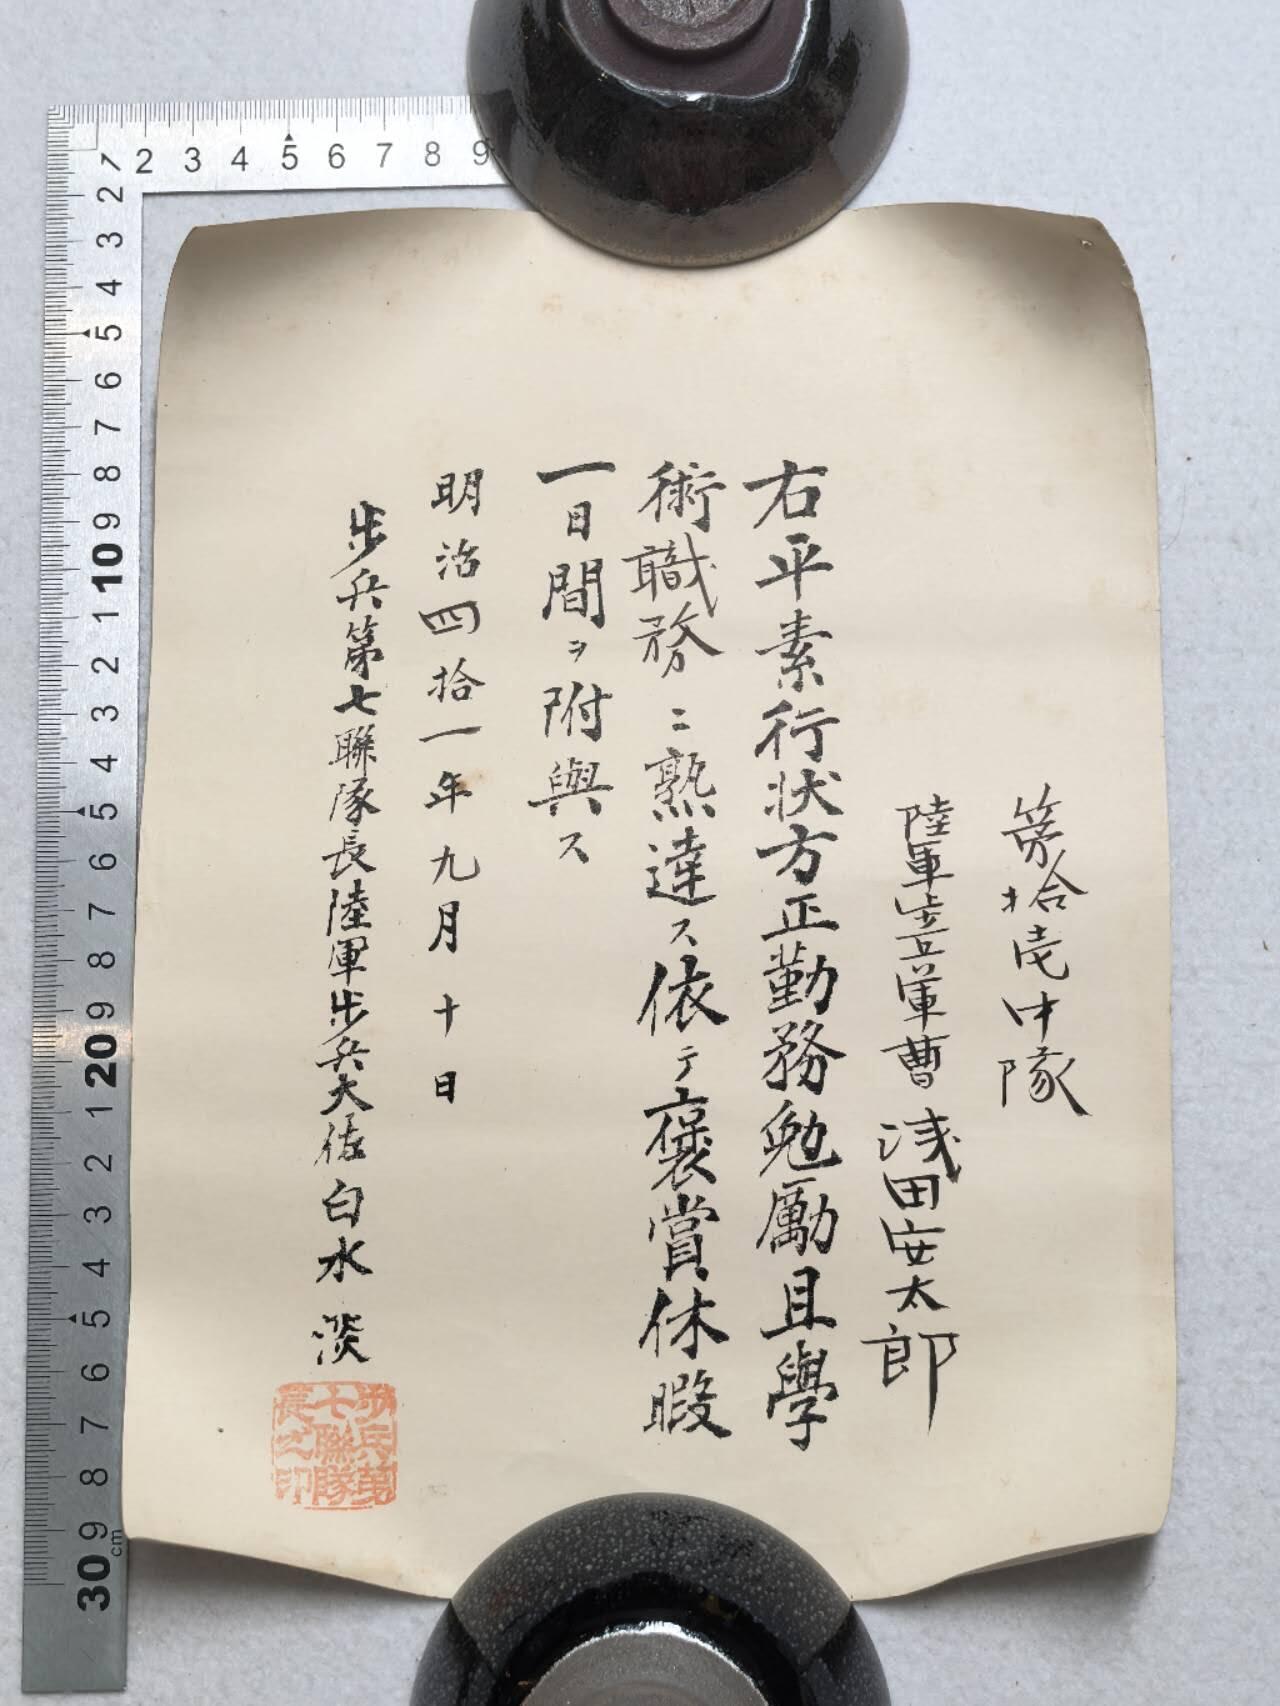 第拾壱中隊
陸軍歩兵軍曹 浅田安太郎
右平素行状方正勤務勉励且學
術職務ニ熟達ス依テ褒賞休暇
一日間ヲ附與ス
明治四拾一年九月十日
歩兵第七聯隊長陸軍歩兵大佐白水淡
歩兵第
七聯隊
長之印
1 2 3 4 5 6 7 8 9
2 3 4 5 6 7 8 9 10 1 2 3 4 5 6 7 8 9 20 1 2 3 4 5 6 7 8 9 30 cm